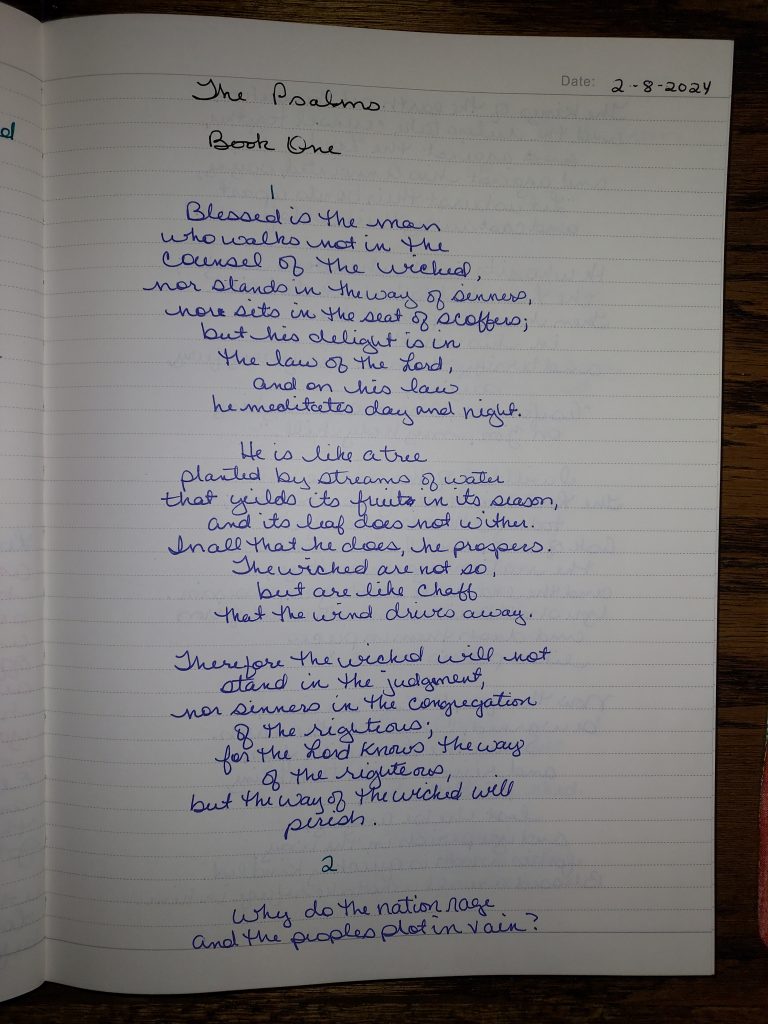 d
Date: 2-8-2024
The Psalms
Book One
1
Blessed is the man
who walks not in the
counsel of the wicked,
nor stands in the way of sinners,
nor sits in the seat of scoffers;
but his delight is in
the law of the Lord,
and on his law
he meditates day and night.
He is like a tree
planted by streams of water
that yeilds its fruit in its season,
and its leaf does not wither.
In all that he does, he prospers.
The wicked are not so,
but are like chaff
that the wind drives away.
Therefore the wicked will not
stand in the judgment,
nor sinners in the congregation
of the rightious;
for the Lord knows the way
of the righteous,
but the way of the wicked will
perish.
2
Why do the nation rage
and the peoples plot in vain?